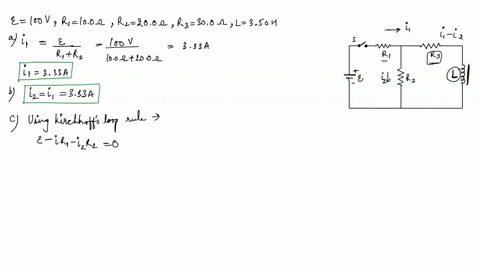 ε = 100 V, R₁ = 10.0 Ω, R₂ = 20.0 Ω, R₃ = 30.0 Ω, L = 3.50 H
a) i₁ = ε / (R₁ + R₂) = 100 V / (10.0 Ω + 20.0 Ω) = 3.33 A
i₁ = 3.33 A
b) i₂ = i₁ = 3.33 A
c) Using Kirchhoff's loop rule →
ε − iR₁ − i₂R₂ = 0
i₁
i₁ − i₂
S
R₁
R₃
+
ε
−
i₂↓
R₂
L